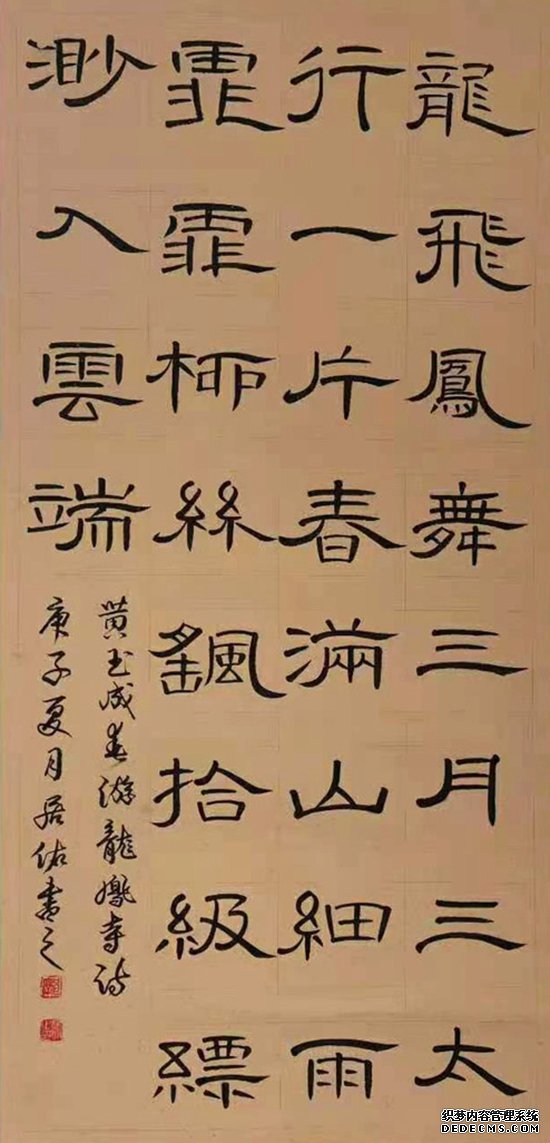 龍飛鳳舞三月三太
行一片春滿山細雨
霏霏柳絲飄拾級縹
渺入雲端
黄玉成春游龍鳳寺诗
庚子夏月居佑書之
织梦内容管理系统
DEDECMS.COM